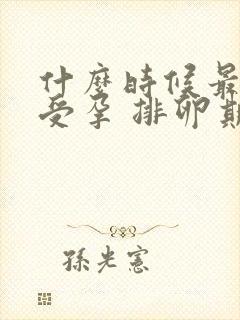 什麼時候最
受孕 排卵期
孫光憲